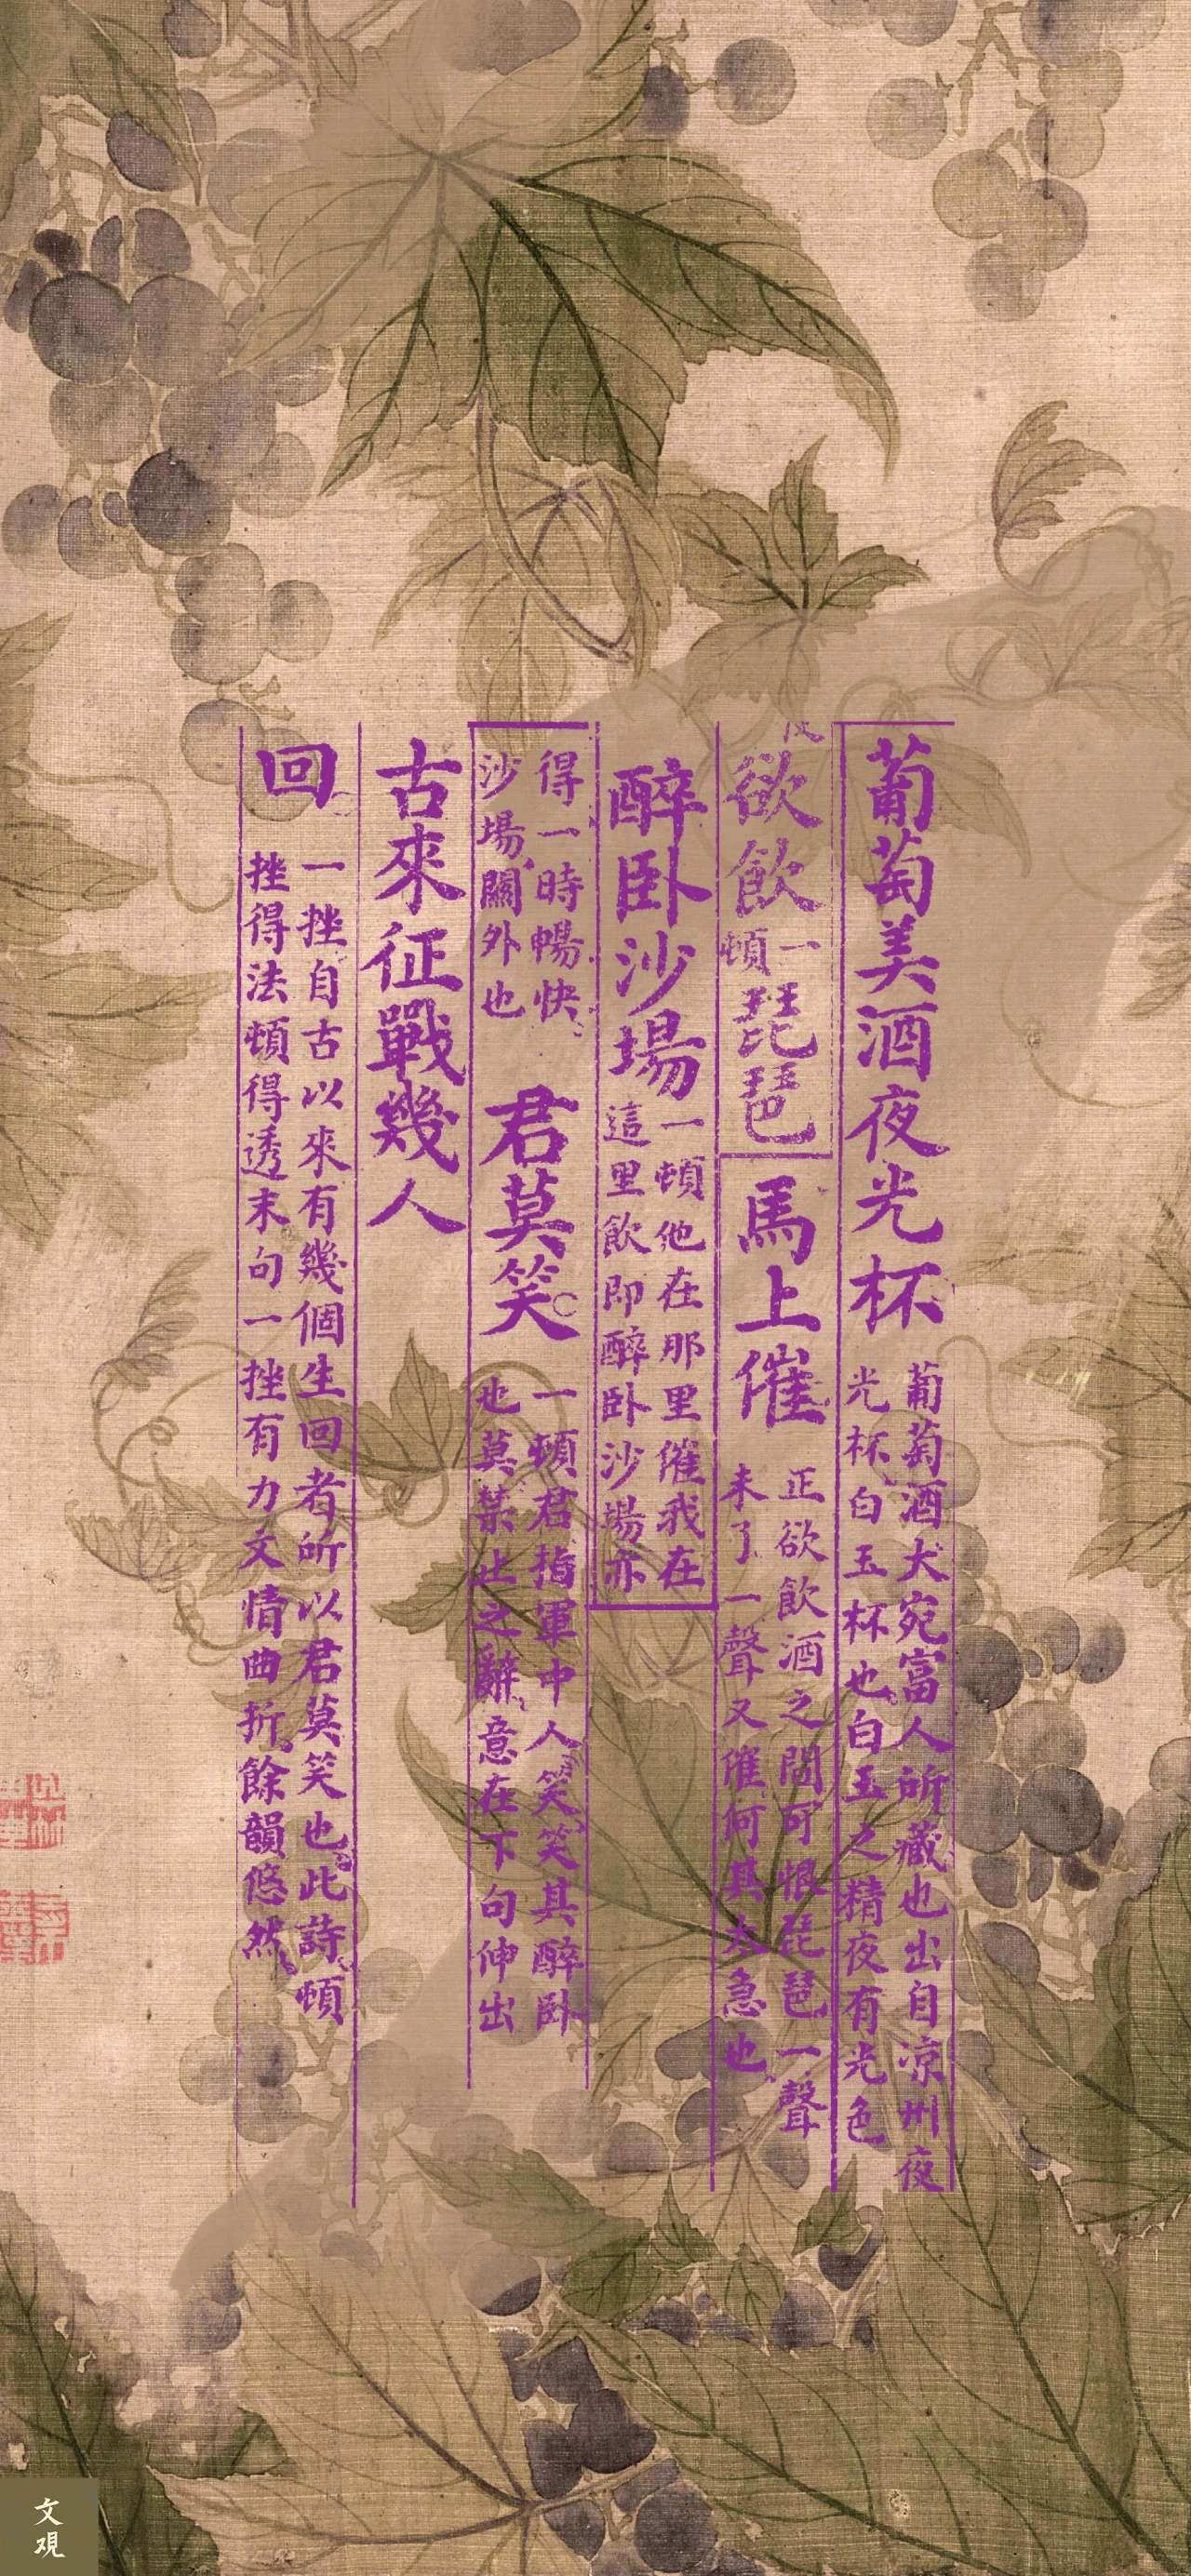 葡萄美酒夜光杯 葡萄酒大宛富人所藏也出自凉州夜光杯白玉杯也白玉之精夜有光色
欲飲 一頓 琵琶 馬上催 正欲飲酒之間可恨琵琶一聲未了一聲又催何其太急也
醉臥沙場 一頓他在那里催我在這里飲即醉臥沙場亦
得一時暢快沙場關外也 君莫笑 一頓君指軍中人笑笑其醉臥也莫禁止之辭意在下句伸出
古來征戰幾人
回 一挫自古以來有幾個生回者所以君莫笑也此詩頓挫得法頓得透末句一挫有力文情曲折餘韻悠然
文观